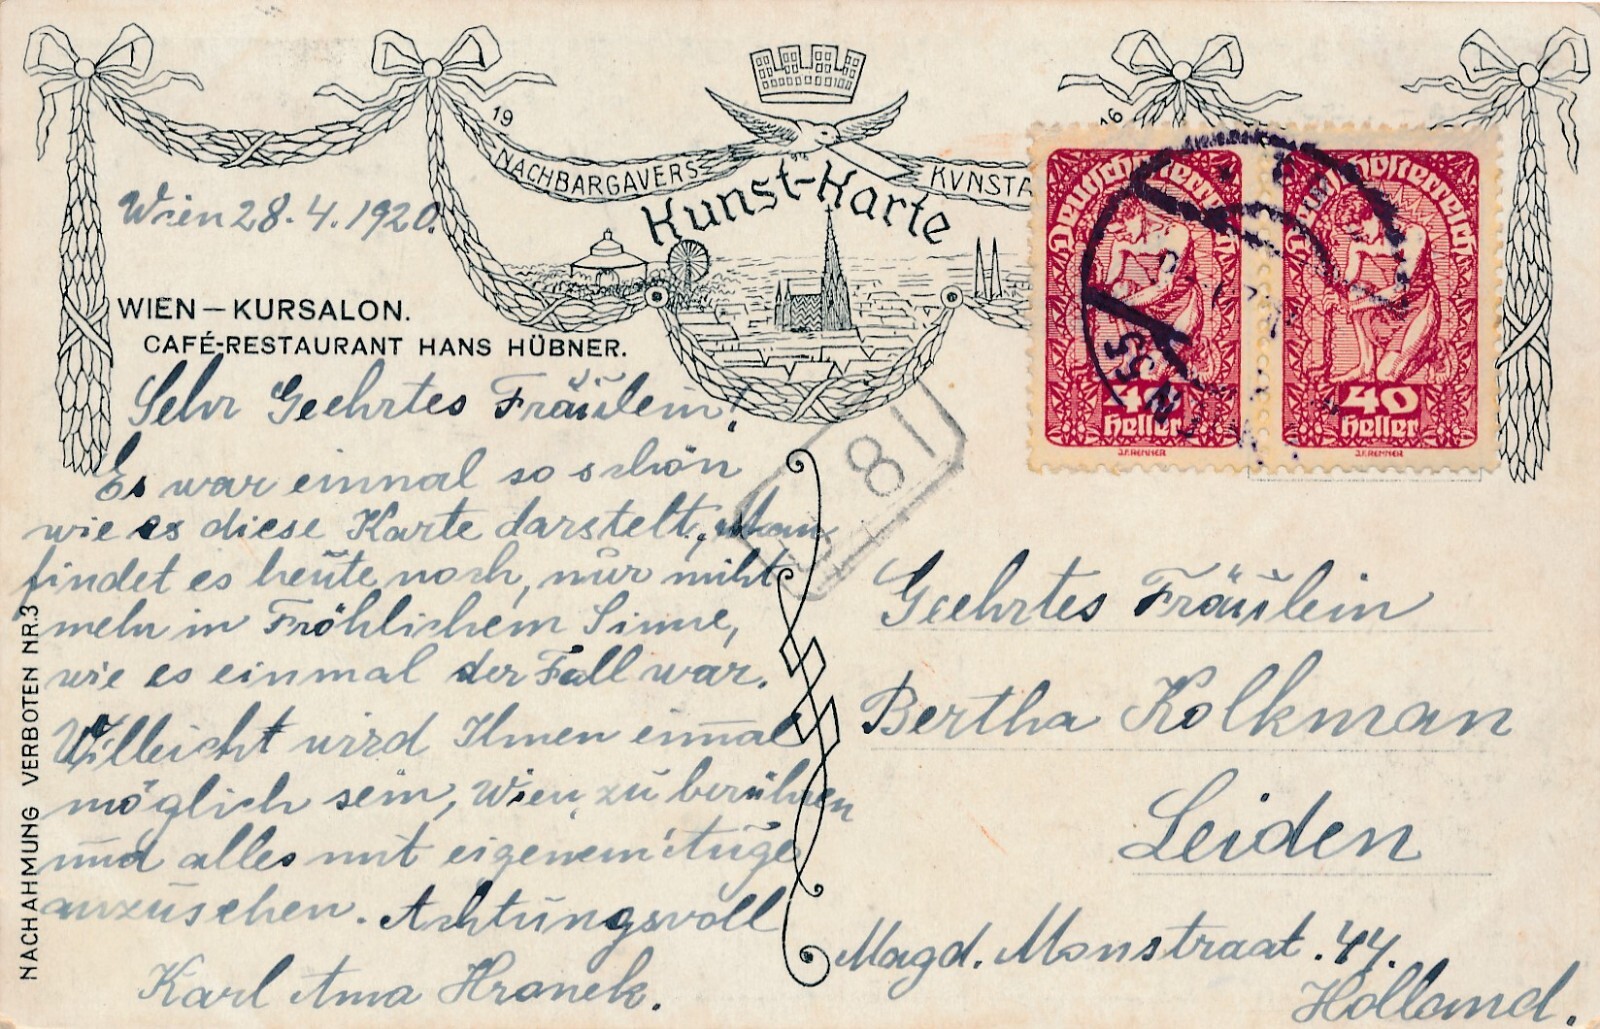 19
16
NACHBARGAVERS
KVNSTA
Kunst-Karte
Wien 28.4.1920.
WIEN — KURSALON.
CAFÉ-RESTAURANT HANS HÜBNER.
Sehr Geehrtes Fräulein!
Es war einmal so schön
wie es diese Karte darstelt, Man
findet es heute noch, nur nicht
mehr in Fröhlichem Sinne,
wie es einmal der Fall war.
Villeicht wird Ihnen einmal
möglich sein, Wien, zu berühren
und alles mit eigenem Auge
anzusehen. Achtungsvoll
Karl Hronek.
NACHAHMUNG VERBOTEN NR.3
181
Deutschösterreich
40
Heller
J.F.RENNER
Deutschösterreich
40
Heller
J.F.RENNER
WIEN 55
Geehrtes Fräulein
Bertha Kolkman
Leiden
Magd. Monstraat. 44.
Holland.